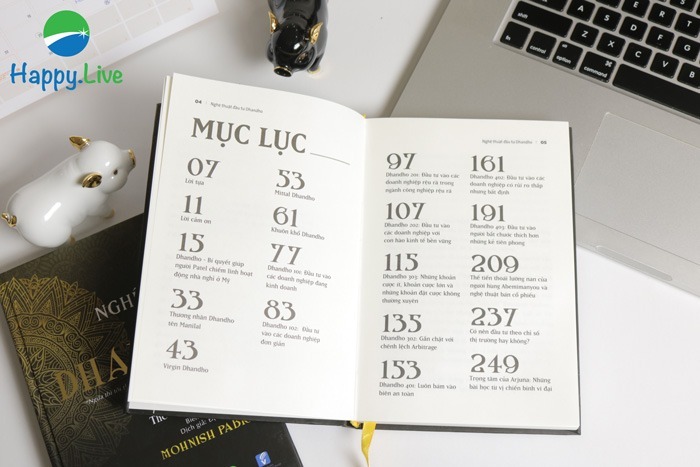 Happy.Live
04 | Nghệ thuật đầu tư Dhandho
MỤC LỤC
07
Lời tựa
11
Lời cảm ơn
15
Dhandho - Bí quyết giúp
người Patel chiếm lĩnh hoạt
động nhà nghỉ ở Mỹ
33
Thương nhân Dhandho
tên Manilal
43
Virgin Dhandho
53
Mittal Dhandho
61
Khuôn khổ Dhandho
77
Dhandho 101: Đầu tư vào
các doanh nghiệp đang
kinh doanh
83
Dhandho 102: Đầu tư
vào các doanh nghiệp
đơn giản
Nghệ thuật đầu tư Dhandho | 05
97
Dhandho 201: Đầu tư vào các
doanh nghiệp rệu rã trong
ngành công nghiệp rệu rã
107
Dhandho 202: Đầu tư vào
các doanh nghiệp với
con hào kinh tế bền vững
115
Dhandho 301: Những khoản
cược ít, khoản cược lớn và
những khoản đặt cược không
thường xuyên
135
Dhandho 302: Gắn chặt với
chênh lệch Arbitrage
153
Dhandho 401: Luôn bám vào
biên an toàn
161
Dhandho 402: Đầu tư vào các
doanh nghiệp có rủi ro thấp
nhưng bất định
191
Dhandho 403: Đầu tư vào
người bắt chước thích hơn
những kẻ tiên phong
209
Thế tiến thoái lưỡng nan của
người hùng Abhimanyu và
nghệ thuật bán cổ phiếu
237
Có nên đầu tư theo chỉ số
thị trường hay không?
249
Trọng tâm của Arjuna: Những
bài học từ vị chiến binh vĩ đại
NGH
DHA
The
Dịch giả:
MOHNISH PABR
shift
fn
control
option
command